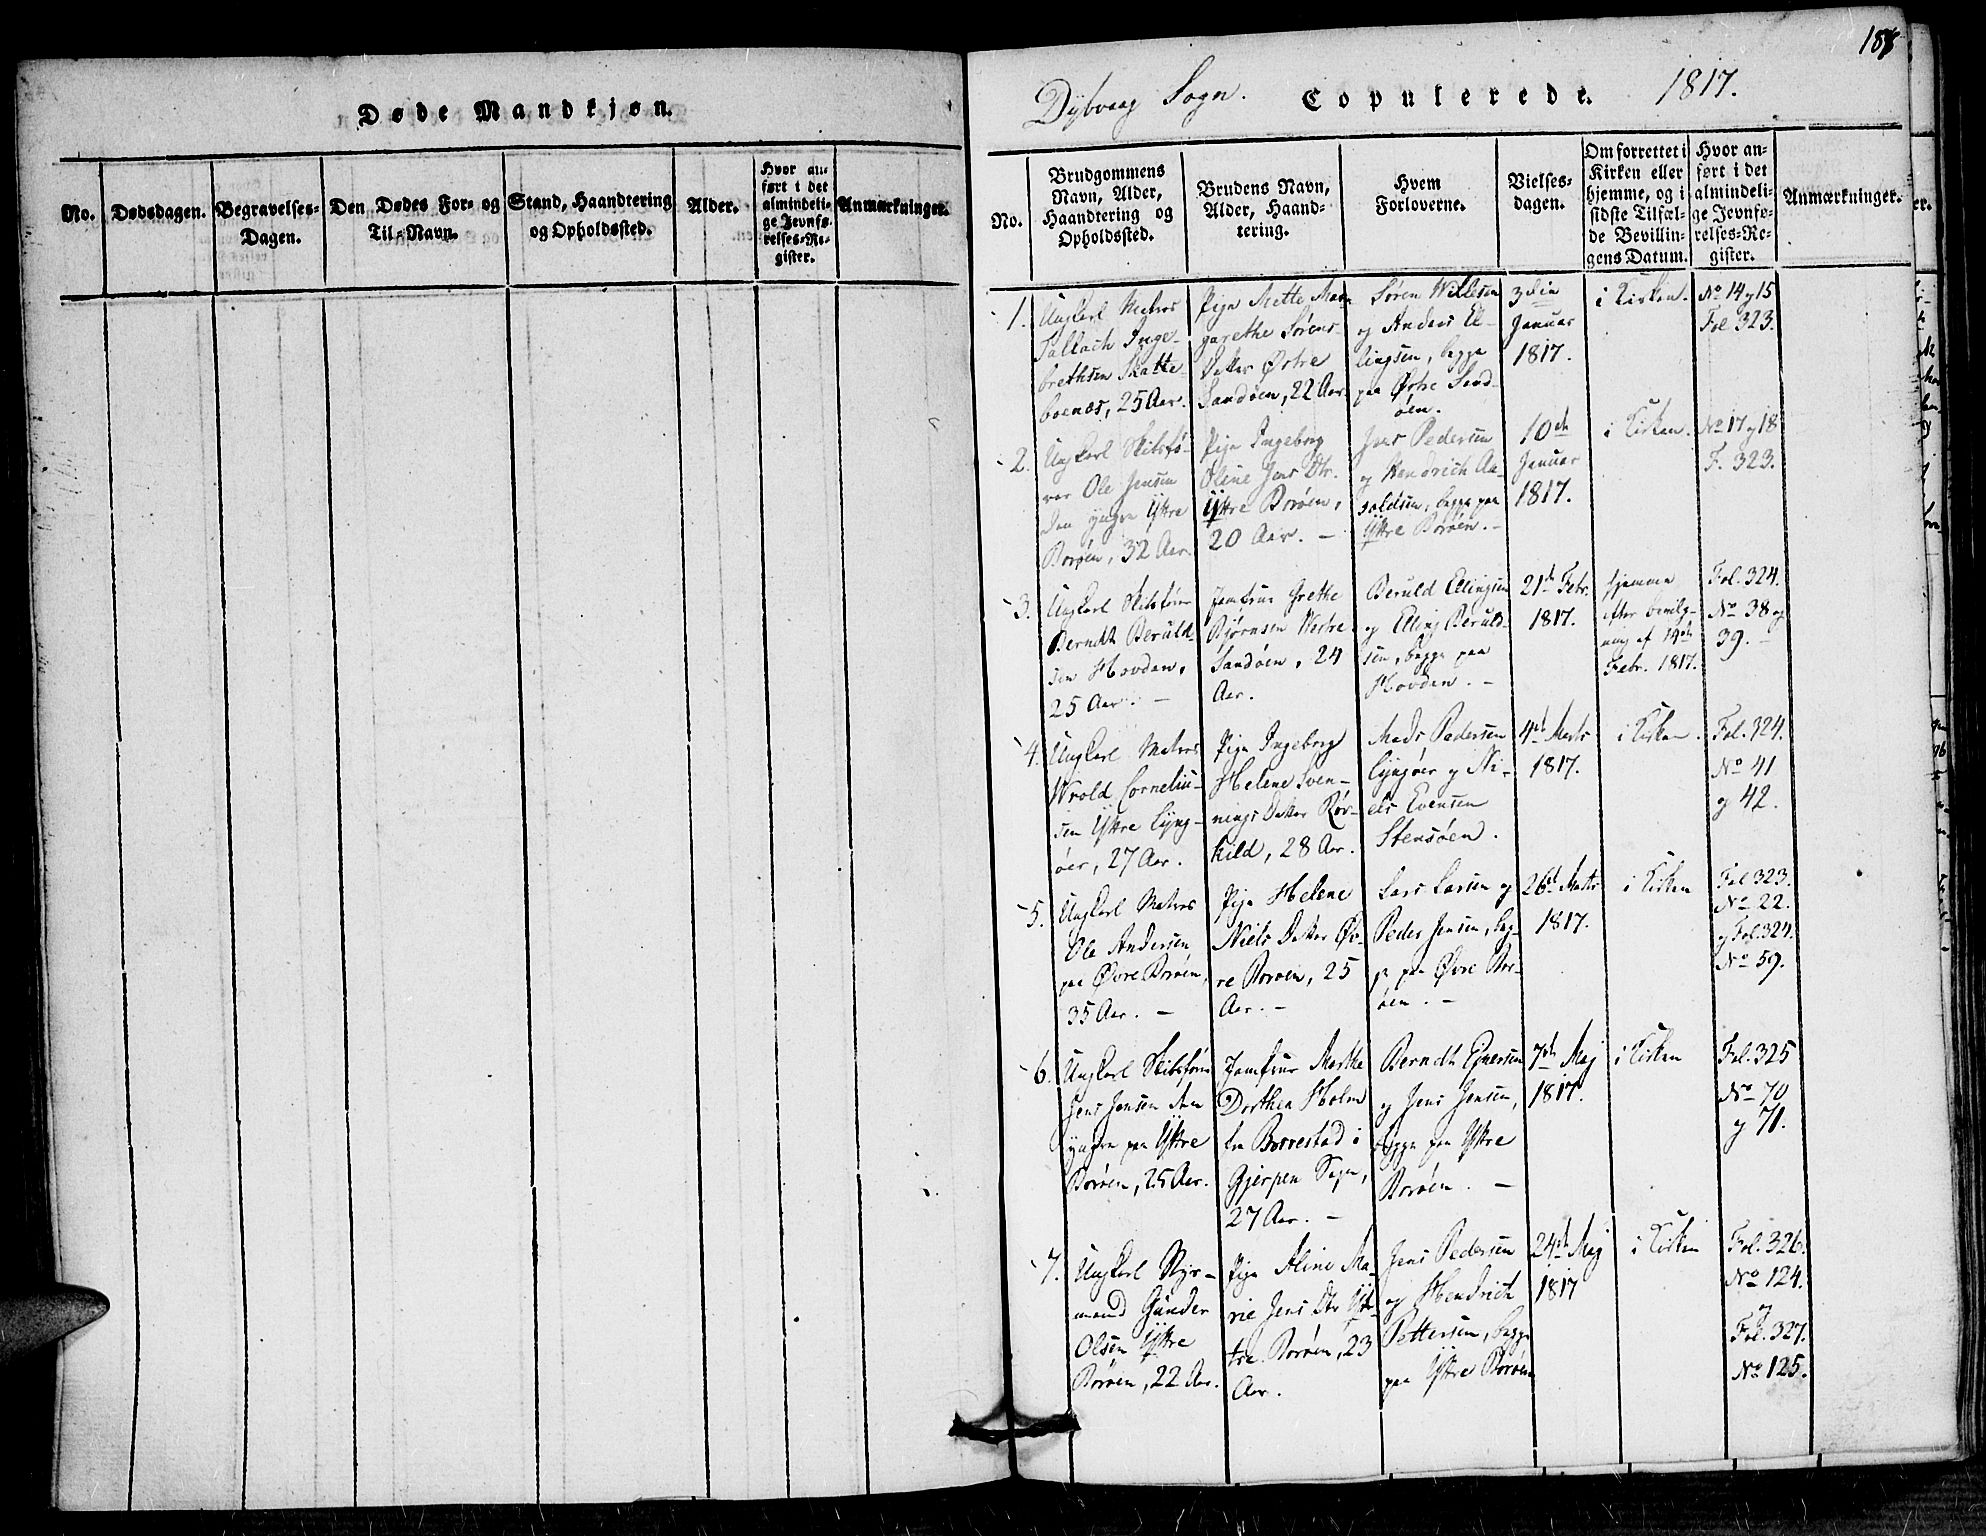 Døde Mandkjøn.
No.
Dødsdagen.
Begravelses-
Dagen.
Den Dødes For- og
Til-Navn.
Stand, Haandtering
og Opholdssted.
Alder.
Hvor an-
ført i det
almindeli-
ge Jevnfø-
relses-Re-
gister.
Anmærkninger.
188
Dybvaag Sogn. Copulerede. 1817.
No.
Brudgommens
Navn, Alder,
Haandtering og
Opholdssted.
Brudens Navn,
Alder, Haand-
tering.
Hvem
Forloverne.
Vielses-
dagen.
Om forrettet i
Kirken eller
hjemme, og i
sidste Tilfæl-
de Bevillin-
gens Datum.
Hvor an-
ført i det
almindeli-
ge Jevnfø-
relses-Re-
gister.
Anmærkninger.
1.
Ungkarl Matros
Sallach Inge-
brethsen Skatte-
boenæs, 25 Aar.
Pige Mette Mar-
garethe Sørens
Datter Østre
Sandøen, 22 Aar.
Søren Willesen
og Anders El-
lingsen, begge
paa Østre Sand-
øen.
3die
Januar
1817.
i Kirken.
No 14 og 15
Fol 323.
2.
Ungkarl Skibsfø-
rer Ole Jensen
den yngre Yttre
Borøen, 32 Aar.
Pige Ingeborg
Oline Jens Dtr.
Yttre Borøen,
20 Aar. -
Jens Pedersen
og Hendrich Aa-
saldsen, begge paa
Yttre Borøen. -
10de
Januar
1817.
i Kirken.
No 17 og 18
F. 323.
3.
Ungkarl Skibsfører
Berndt Beruld-
sen Hovden,
25 Aar. -
Jomfrue Grethe
Bjørnsen Westre
Sandøen, 24
Aar.
Beruld Ellingsen
og Elling Beruld-
sen, begge paa
Hovden. -
21de Febr.
1817.
hjemme
efter bevilg-
ning af 14de
Febr. 1817.
Fol. 324.
No 38 og
39. -
4.
Ungkarl Matros
Wrold Corneliu-
sen Yttre Lyng-
øer, 27 Aar.
Pige Ingeborg
Helene Sven-
nings Datter Rør-
kild, 28 Aar.
Mads Pedersen
Lyngøer og Ni-
els Evensen
Stensøen.
4de Marts
1817.
i Kirken.
Fol. 324.
No 41
og 42.
5.
Ungkarl Matros
Ole Andersen
paa Øvre Borøen,
35 Aar. -
Pige Helene
Niels Datter Øv-
re Borøen, 25
Aar. -
Lars Larsen og
Peder Jensen, beg-
ge paa Øvre Bor-
øen. -
26de Marts
1817.
i Kirken
Fol 323.
No 22.
og Fol. 324.
No 59.
6.
Ungkarl Skibsfører
Jens Jensen den
yngre paa Yttre
Borøen, 25 Aar.
Jomfrue Marthe
Dorthea Holm
fra Borrestad i
Gjerpen Sogn,
27 Aar. -
Berndt Ejversen
og Jens Jensen,
begge paa Yttre
Borøen. -
7de Maj
1817.
i Kirken
Fol. 325
No 70
og 71.
7.
Ungkarl Styr-
mand Gunder
Olsen Yttre
Borøen, 22 Aar.
Pige Aline Ma-
rie Jens Dtr Yt-
tre Borøen, 23
Aar.
Jens Pedersen
og Hendrich
Pettersen, begge
paa Yttre Borøen
24de Maj
1817
i Kirken
Fol. 326.
No 124.
og
Fol. 327.
No 125.